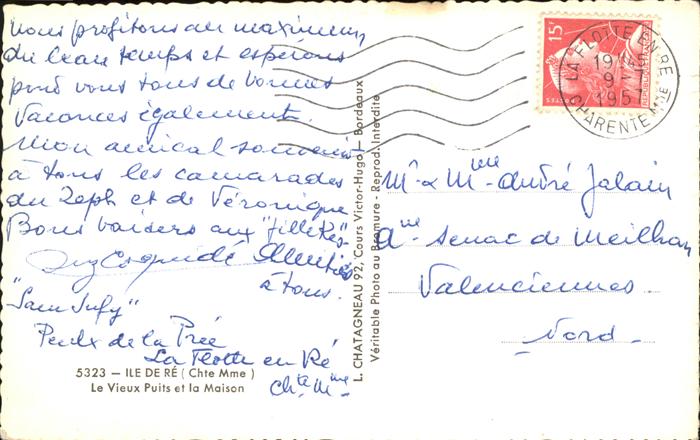 nous profitons au maximum
du beau temps et espérons
pour vous tous de bonnes
vacances également.
Mon amical souvenir
à tous les camarades
du Zeph et de Véronique
Bons baisers aux "fillettes"
Amitiés
à tous.
"Sam Sufy"
de la Prée
La Flotte en Ré
Chte Mme
5323 — ILE DE RÉ ( Chte Mme )
Le Vieux Puits et la Maison
L. CHATAGNEAU 92, Cours Victor-Hugo — Bordeaux
Véritable Photo au Bromure - Reprod. Interdite
15F
REPUBLIQUE FRANÇAISE
LA FLOTTE EN RE
19H45
9 - 7
1957
CHARENTE MME
Mr & Mme André Jalain
Senac de Meilhan
Valenciennes.
Nord.